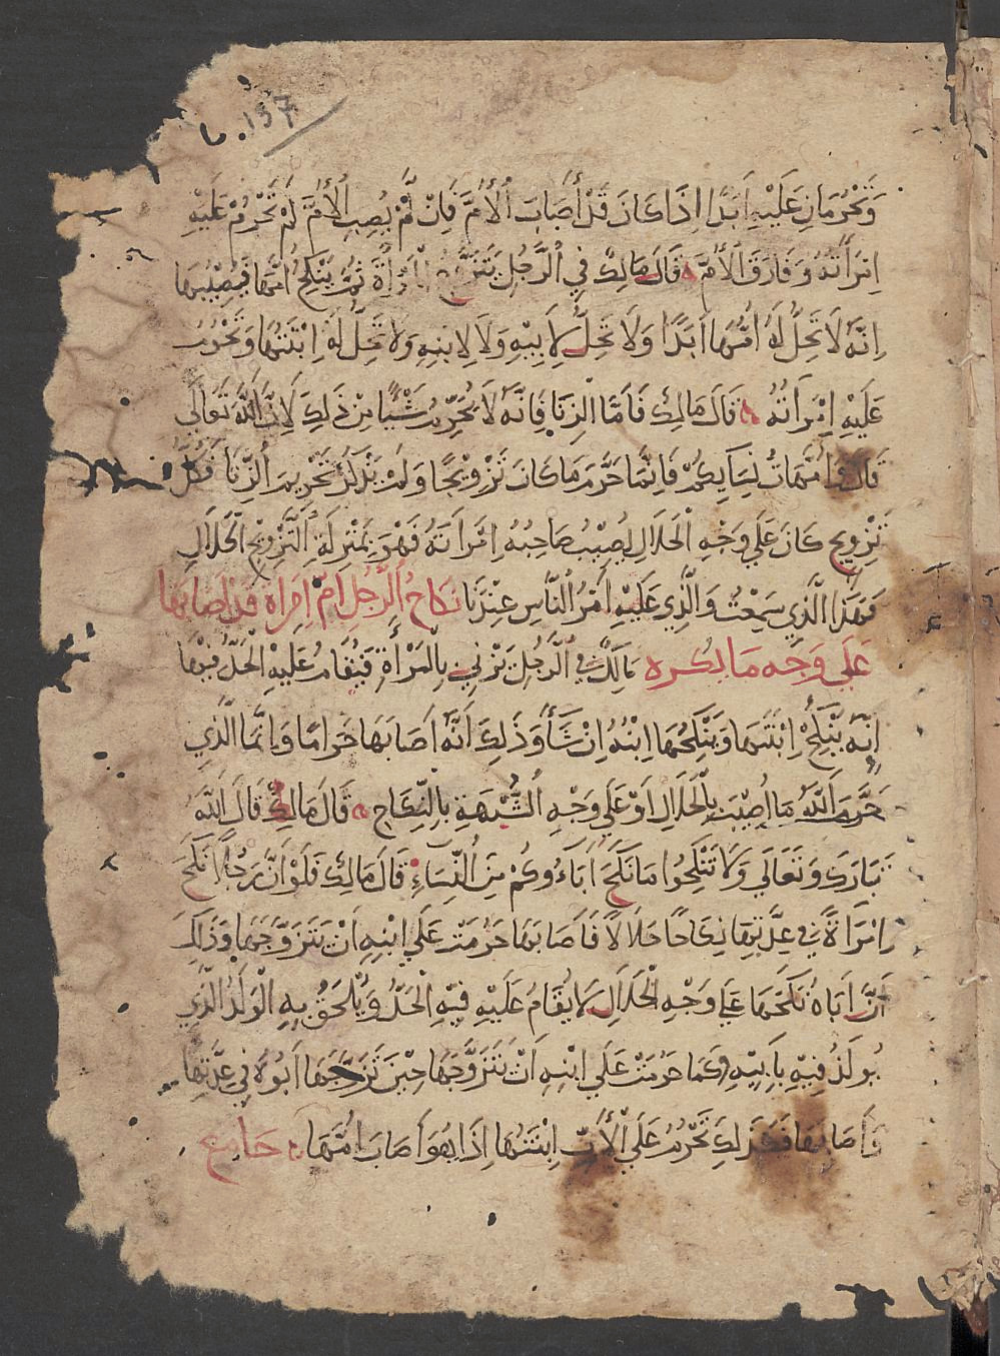 137
وَتَحْرُمَانِ عَلَيْهِ أَبَدًا اِذَا كَانَ قَدْ أَصَابَ الْأُمَّ فَإِنْ لَّمْ يُصِبِ الْأُمَّ لَمْ تَحْرُمْ عَلَيْهِ
اِمْرَأَتُهُ وَفَارَقَ الْأُمَّ قَالَ مَالِكٌ فِي الرَّجُلِ يَتَزَوَّجُ الْمَرْأَةَ ثُمَّ يَنْكِحُ أُمَّهَا فَيُصِيبُهَا
اِنَّهُ لَا تَحِلُّ لَهُ أُمُّهَا أَبَدًا وَلَا تَحِلُّ لِأَبِيهِ وَلَا لِابْنِهِ وَلَا تَحِلُّ لَهُ اِبْنَتُهَا وَتَحْرُمُ
عَلَيْهِ اِمْرَأَتُهُ قَالَ مَالِكٌ فَأَمَّا الزِّنَا فَإِنَّهُ لَا يُحَرِّمُ شَيْئًا مِنْ ذَلِكَ لِأَنَّ اللَّهَ تَعَالَى
قَالَ وَأُمَّهَاتُ نِسَايِكُمْ فَإِنَّمَا حَرَّمَ مَا كَانَ تَزْوِيجًا وَلَمْ يَذْكُرْ تَحْرِيمَ الزِّنَا فَكُلُّ
تَزْوِيجٍ كَانَ عَلَى وَجْهِ الْحَلَالِ يُصِيبُ صَاحِبُهُ اِمْرَأَتَهُ فَهْوَ بِمَنْزِلَةِ التَّزْوِيجِ الْحَلَالِ
فَهَذَا الَّذِي سَمِعْتُ وَالَّذِي عَلَيْهِ أَمْرُ النَّاسِ عِنْدَنَا نكاح الرجل ام امراة قد اصابها
على وجه ما يكره مَالِكٌ فِي الرَّجُلِ يَزْنِي بِالْمَرْأَةِ فَيُقَامُ عَلَيْهِ الْحَدُّ فِيهَا
اِنَّهُ يَنْكِحُ اِبْنَتَهَا وَيَنْكِحُهَا اِبْنُهُ اِنْ شَاءَ وَذَلِكَ أَنَّهُ أَصَابَهَا حَرَامًا وَاِنَّمَا الَّذِي
حَرَّمَ اللَّهُ مَا أُصِيبَ بِالْحَلَالِ أَوْ عَلَى وَجْهِ الشُّبْهَةِ بِالنِّكَاحِ قَالَ مَالِكٌ قَالَ اللَّهُ
تَبَارَكَ وَتَعَالَى وَلَا تَنْكِحُوا مَا نَكَحَ آبَاؤُكُمْ مِنَ النِّسَاءِ قَالَ مَالِكٌ فَلَوْ أَنَّ رَجُلًا نَكَحَ
اِمْرَأَةً فِي عِدَّتِهَا نِكَاحًا حَلَالًا فَأَصَابَهَا حَرُمَتْ عَلَى ابْنِهِ أَنْ يَتَزَوَّجَهَا وَذَلِكَ
أَنَّ أَبَاهُ نَكَحَهَا عَلَى وَجْهِ الْحَلَالِ لَا يُقَامُ عَلَيْهِ فِيهِ الْحَدُّ وَيُلْحَقُ بِهِ الْوَلَدُ الَّذِي
يُولَدُ فِيهِ بِأَبِيهِ وَكَمَا حَرُمَتْ عَلَى ابْنِهِ أَنْ يَتَزَوَّجَهَا حِينَ تَزَوَّجَهَا أَبُوهُ فِي عِدَّتِهَا
وَأَصَابَهَا فَكَذَلِكَ تَحْرُمُ عَلَى الْأَبِ اِبْنَتُهَا اِذَا هُوَ أَصَابَ أُمَّهَا جامع